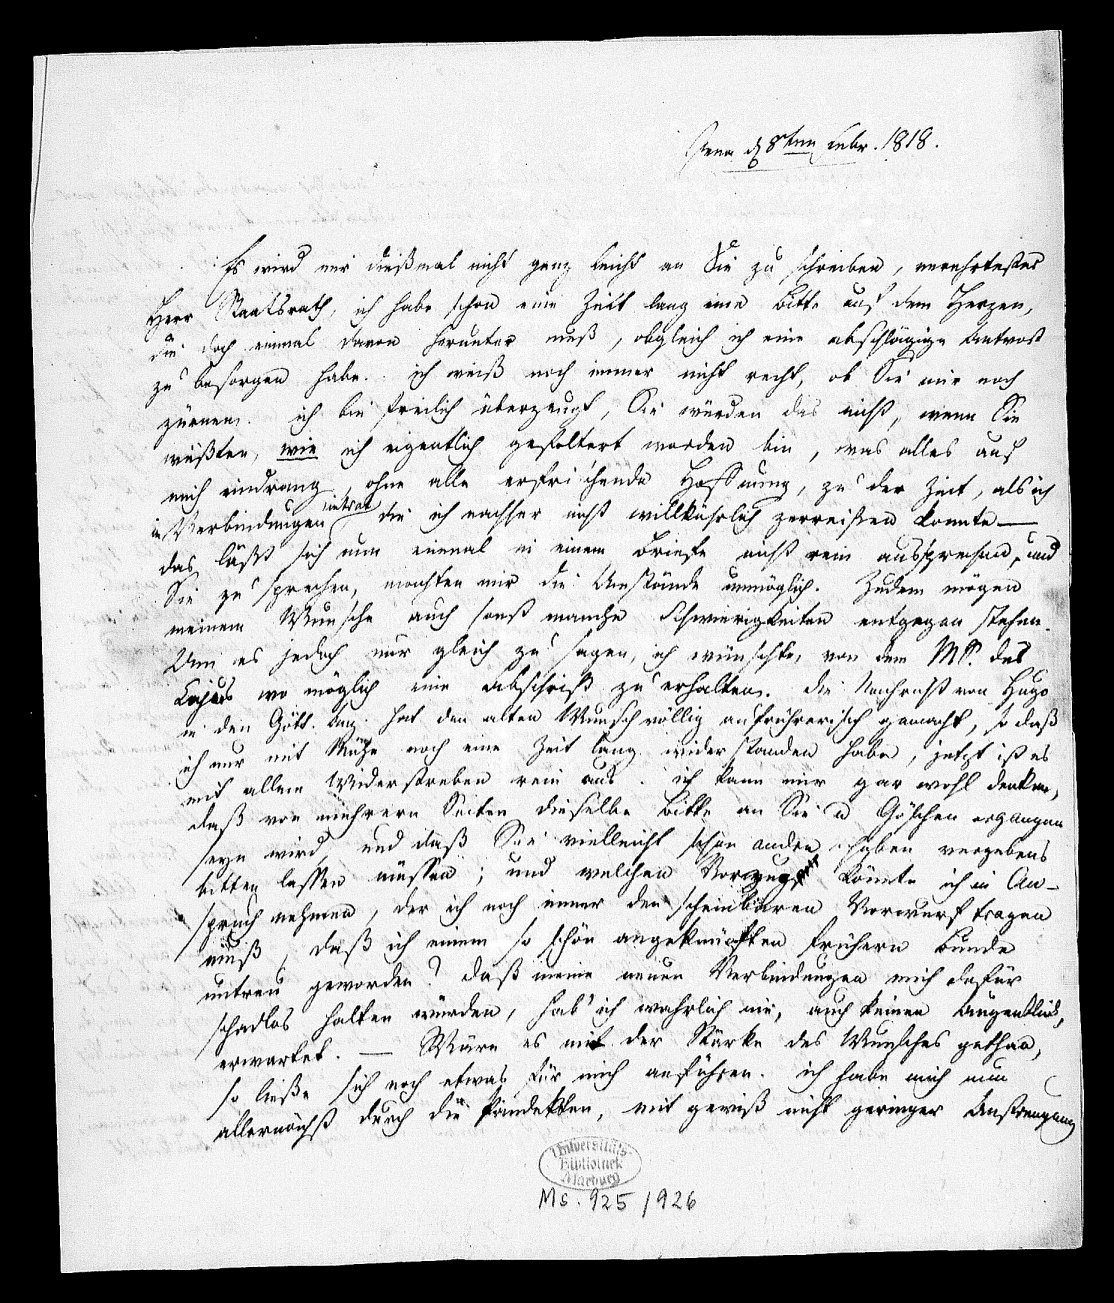 Jena d 8ten Febr. 1818.
Es wird mir dießmal nicht ganz leicht an Sie zu schreiben, verehrtester
Herr Staatsrath, ich habe schon eine Zeit lang eine Bitte auf dem Herzen,
die doch einmal davon herunter muß, obgleich ich eine abschlägige Antwort
zu besorgen habe. ich weiß noch immer nicht recht, ob Sie mir noch
zürnen. ich bin freilich überzeugt, Sie würden das nicht, wenn Sie
wüßten, wie ich eigentlich gefoltert worden bin, was alles auf
mich eindrang, ohne alle erfrischende Hoffnung, zu der Zeit, als ich
in Verbindungen eintrat die ich nachher nicht willkührlich zerreissen konnte —
das läßt sich nun einmal in einem Briefe nicht rein aussprechen, und
Sie zu sprechen, machten mir die Umstände unmöglich. Zudem mögen
meinem Wunsche auch sonst manche Schwierigkeiten entgegen stehen.
Um es jedoch nur gleich zu sagen, ich wünschte, von dem MS. des
Gajus wo möglich eine Abschrift zu erhalten. Die Nachricht von Hugo
in den Gött. Anz. hat den alten Wunsch völlig aufrührerisch gemacht, so daß
ich nur mit Mühe noch eine Zeit lang widerstanden habe, jetzt ist es
mit allem Widerstreben rein aus. ich kann mir gar wohl denken,
daß von mehrern Seiten dieselbe Bitte an Sie u Göschen ergangen
seyn wird, und daß Sie vielleicht schon andre haben vergebens
bitten lassen müssen; und welchen Vorzug könnte ich in An-
spruch nehmen, der ich noch immer den scheinbaren Vorwurf tragen
muß, daß ich einem so schön angeknüpften frühern Bunde
untreu geworden? daß meine neuen Verbindungen mich dafür
schadlos halten würden, hab' ich wahrlich nie, auch keinen Augenblick,
erwartet. — Wäre es mit der Stärke des Wunsches gethan,
so ließe sich noch etwas für mich anführen. ich habe mich nun
allernächst durch die Pandekten, mit gewiß nicht geringer Anstrengung
Universitäts-
Bibliothek
Marburg
Ms. 925/926